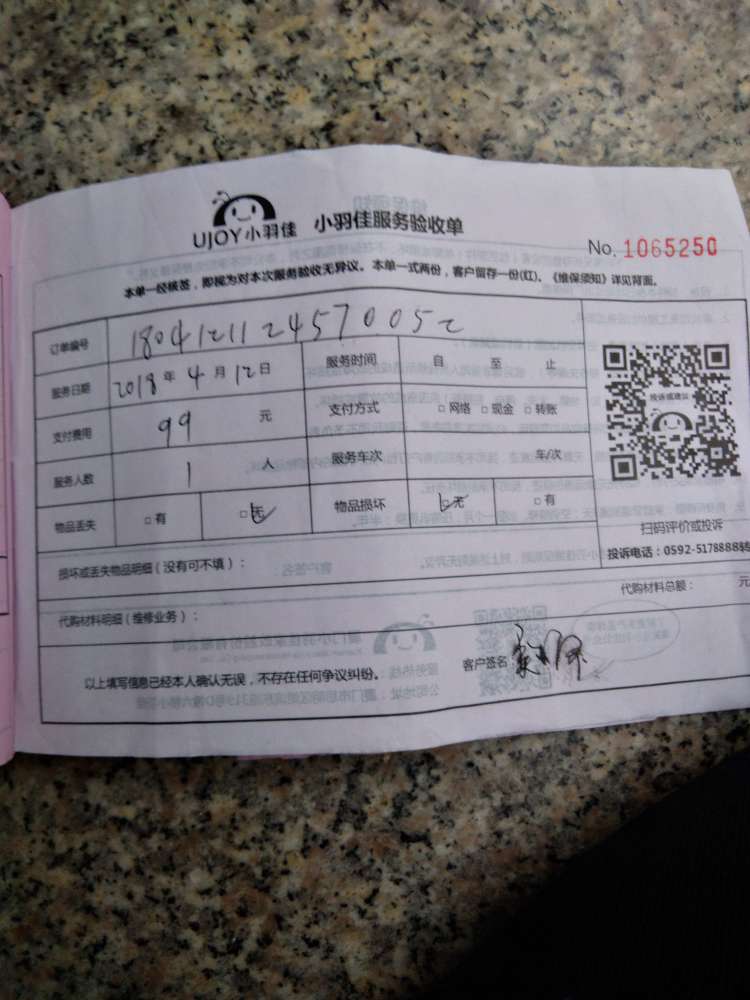 UJOY小羽佳 小羽佳服务验收单
No. 1065250
本单一经核签,即视为对本次服务验收无异议。本单一式两份,客户留存一份(红)。《维保须知》详见背面。
订单编号 1804121124570052
服务日期 2018 年 4 月 12 日 服务时间 自 至 止
支付费用 99 元 支付方式 □ 网络 □ 现金 □ 转账
服务人数 1 人 服务车次 车/次
物品丢失 □ 有 □ 无 物品损坏 □ 无 □ 有
投诉或建议
扫码评价或投诉
投诉电话:0592-5178888
损坏或丢失物品明细(没有可不填):
代购材料明细(维修业务): 代购材料总额: 元
以上填写信息已经本人确认无误,不存在任何争议纠纷。 客户签名